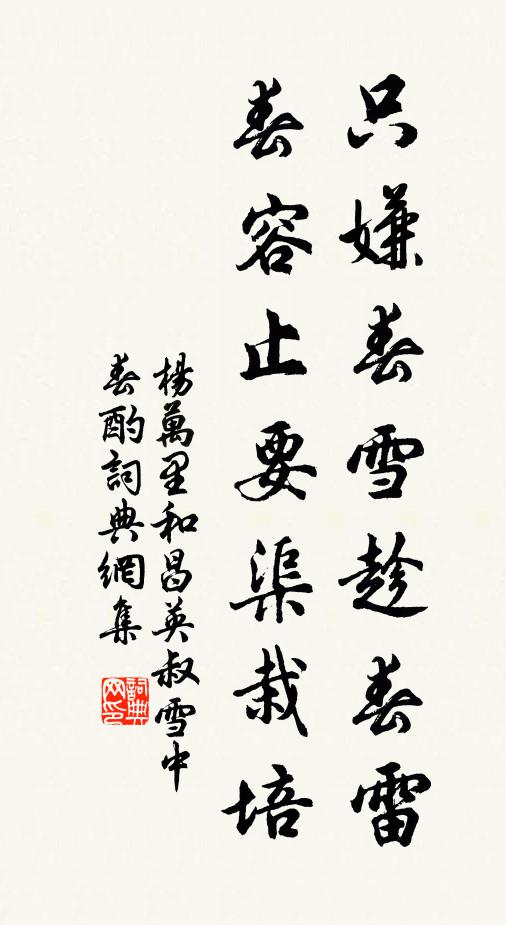 只嫌春雪趁春雷
春容止要渠栽培
楊萬里和昌英叔雪中
春酌詞典網集
詞典
网印